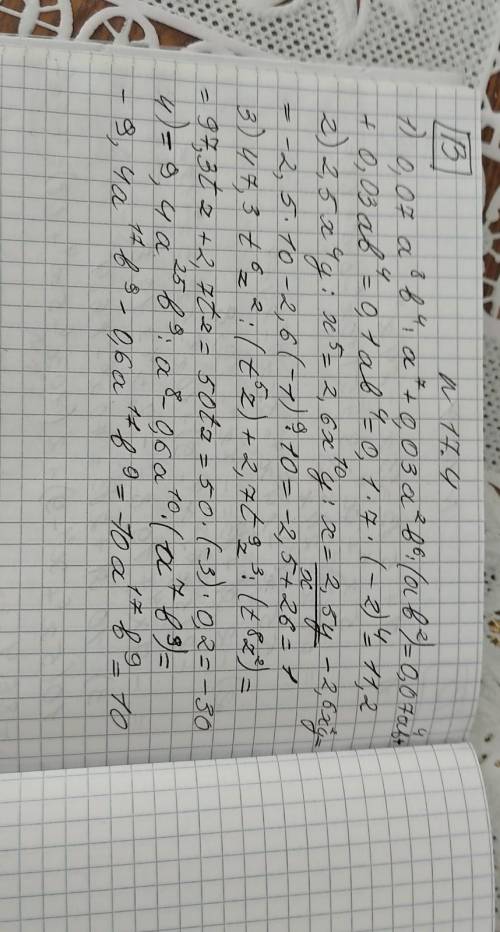 N 17.4
B
1) 0,07 a⁸ b⁴ : a⁷ + 0,03 a² b⁶ : (a b²) = 0,07 a b⁴
+ 0,03 a b⁴ = 0,1 a b⁴ = 0,1 · 7 · (-2)⁴ = 11,2
2) 2,5 x⁴ y : x⁵ = 2,6 x¹⁰ y : x = 2,5y/x - 2,6 x⁹ y =
= -2,5 · 10 - 2,6 (-1)⁹ · 10 = -2,5 + 26 = 1
3) 47,3 t⁶ z² : (t⁵ z) + 2,7 t⁹ z³ : (t⁸ z²) =
= 97,3 t z + 2,7 t z = 50 t z = 50 · (-3) · 0,2 = -30
4) = 9,4 a²⁵ b⁹ : a⁸ - 0,6 a¹⁰ · (a⁷ b⁹) =
- 9,4 a¹⁷ b⁹ - 0,6 a¹⁷ b⁹ = -10 a¹⁷ b⁹ = 10